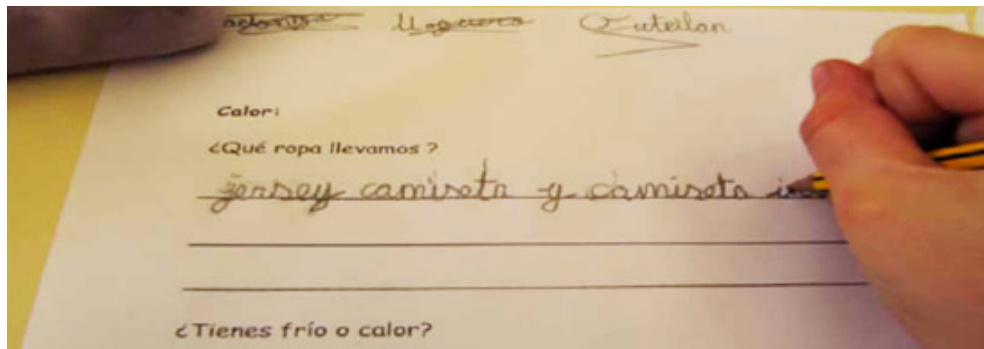 Calor:
¿Qué ropa llevamos ?
jersey camiseta y camiseta
¿Tienes frío o calor?